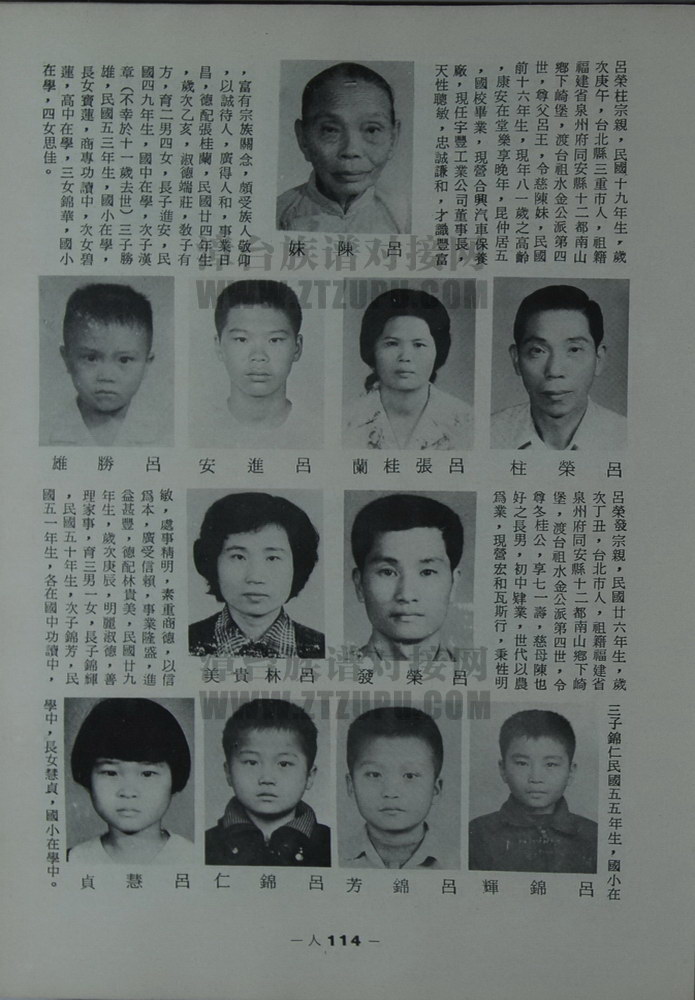 呂榮柱宗親，民國十九年生，歲
次庚午，台北縣三重市人，祖籍
福建省泉州府同安縣十二都南山
鄉下崎堡，渡台祖水金公派第四
世，尊父呂王，令慈陳妹，民國
前十六年生，現年八一歲之高齡
，康安在堂樂享晚年，昆仲居五
，國校畢業，現營合興汽車保養
廠，現任宇豐工業公司董事長，
天性聰敏，忠誠謙和，才識豐富
，富有宗族關念，頗受族人敬仰
，以誠待人，廣得人和，事業日
昌，德配張桂蘭，民國廿四年生
，歲次乙亥，淑德端莊，教子有
方，育二男四女，長子進安，民
國四九年生，國中在學，次子漢
章（不幸於十一歲去世）三子勝
雄，民國五三年生，國小在學，
長女寶蓮，商專功讀中，次女碧
蓮，高中在學，三女錦華，國小
在學，四女思佳。
呂陳妹
呂榮柱
呂張桂蘭
呂進安
呂勝雄
呂榮發宗親，民國廿六年生，歲
次丁丑，台北市人，祖籍福建省
泉州府同安縣十二都南山鄉下崎
堡，渡台祖水金公派第四世，令
尊冬桂公，享七一壽，慈母陳也
好之長男，初中肄業，世代以農
為業，現營宏和瓦斯行，秉性明
敏，處事精明，素重商德，以信
為本，廣受信賴，事業隆盛，進
益甚豐，德配林貴美，民國廿九
年生，歲次庚辰，明麗淑德，善
理家事，育三男一女，長子錦輝
，民國五十年生，次子錦芳，民
國五一年生，各在國中功讀中，
呂榮發
呂林貴美
三子錦仁民國五五年生，國小在
學中，長女慧貞，國小在學中。
呂錦輝
呂錦芳
呂錦仁
呂慧貞
－人114－
漳台族谱对接网
WWW.ZTZUPU.COM
漳台族谱对接网
WWW.ZTZUPU.COM